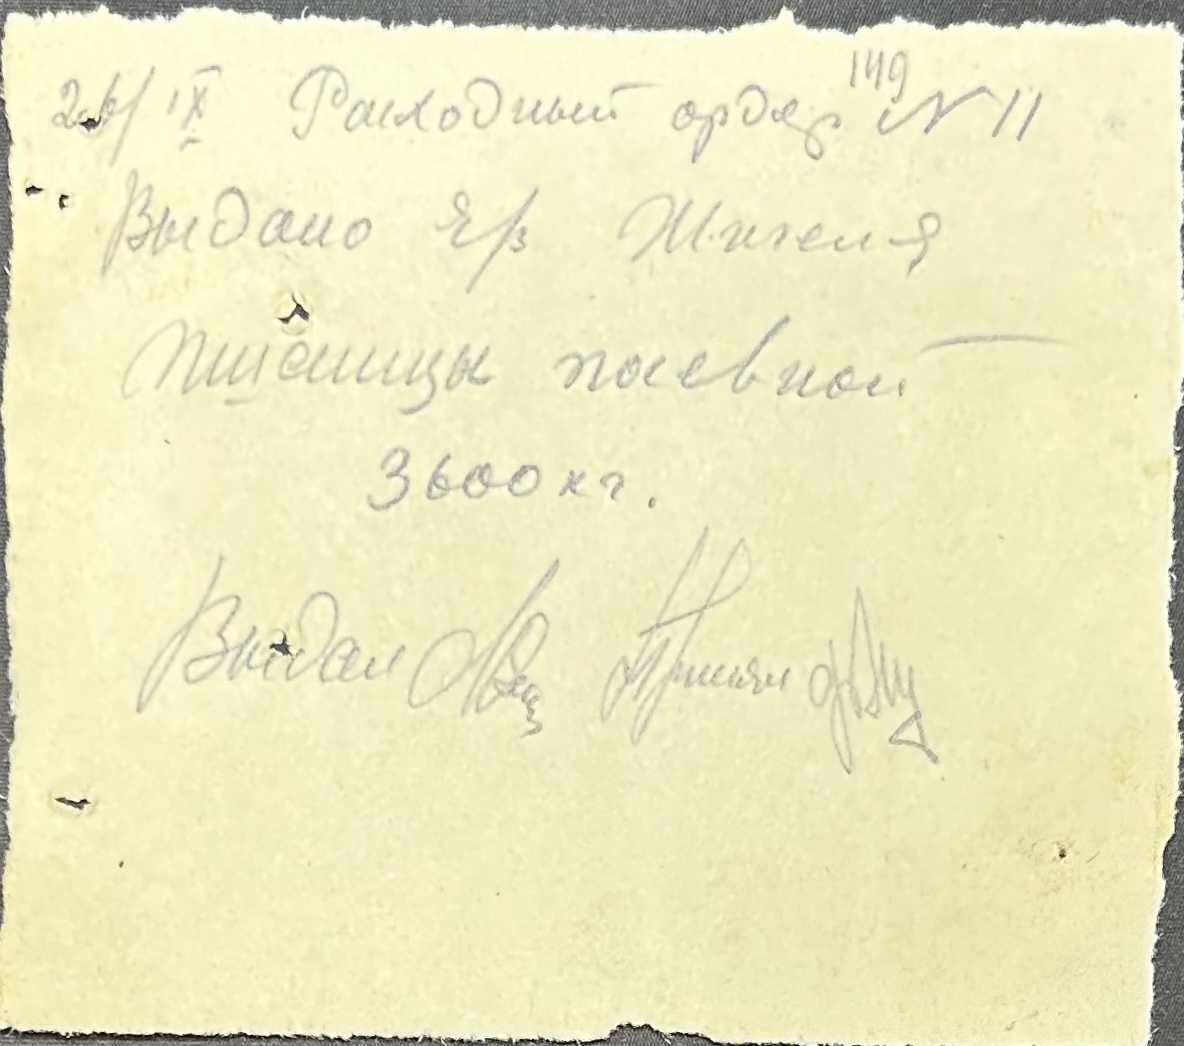 149
26/IX Расходный ордер N 11
Выдано ч/з Жигеля
пшеницы посевной
3600 кг.
Выдал Принял